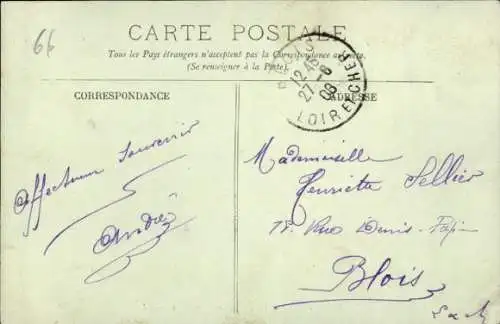 66
CARTE POSTALE
Tous les Pays étrangers n'acceptent pas la Correspondance au recto.
(Se renseigner à la Poste).
12 45
27 - 6
08
LOIR ET CHER
CORRESPONDANCE
ADRESSE
Affectueux Souvenir
André
Mademoiselle
Henriette Sellier
17 Rue Denis-Papin
Blois